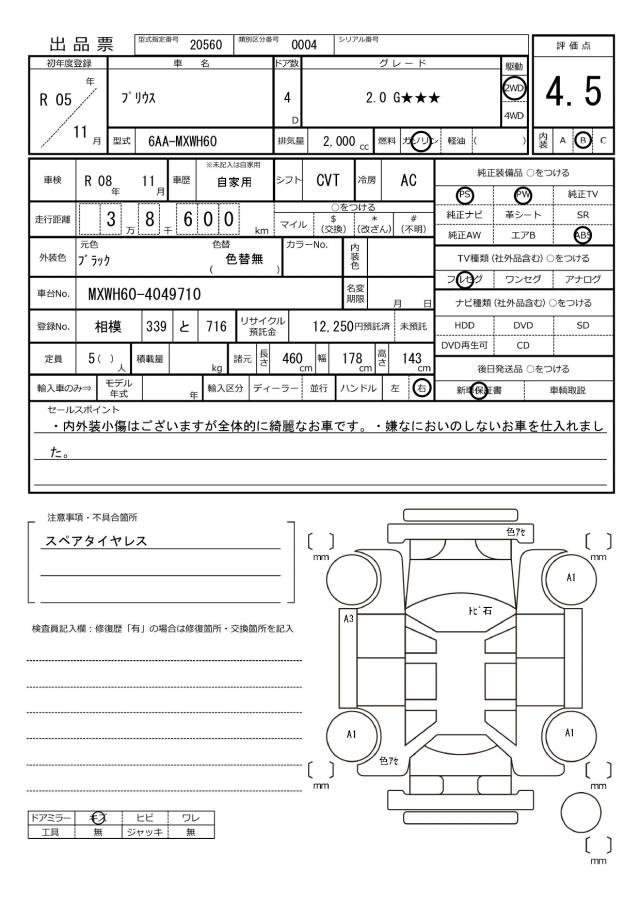 出品票
型式指定番号 20560 類別区分番号 0004 シリアル番号
初年度登録 車 名 ドア数 グレード 駆動 評価点
R 05 年 11 月 ﾌﾟﾘｳｽ 4 D 2.0 G★★★ 2WD 4WD 4.5
型式 6AA-MXWH60 排気量 2,000 cc 燃料 ガソリン 軽油 ( ) 内装 A B C
車検 R 08 年 11 月 車歴 ※未記入は自家用 自家用 シフト CVT 冷房 AC
純正装備品 ○をつける
PS PW 純正TV
純正ナビ 革シート SR
純正AW エアB ABS
走行距離 3 万 8 千 6 0 0 km ○をつける マイル $ (交換) * (改ざん) # (不明)
外装色 元色 ﾌﾞﾗｯｸ 色替 ( 色替無 ) カラーNo. 内装色
TV種類 (社外品含む) ○をつける
フルセグ ワンセグ アナログ
車台No. MXWH60-4049710 名変期限 月 日
ナビ種類 (社外品含む) ○をつける
HDD DVD SD
DVD再生可 CD
登録No. 相模 339 と 716 リサイクル預託金 12,250円預託済 未預託
定員 5( ) 人 積載量 kg 諸元 長さ 460 cm 幅 178 cm 高さ 143 cm
後日発送品 ○をつける
新車保証書 車輌取説
輸入車のみ⇒ モデル年式 年 輸入区分 ディーラー 並行 ハンドル 左 右
セールスポイント
・内外装小傷はございますが全体的に綺麗なお車です。・嫌なにおいのしないお車を仕入れまし
た。
注意事項・不具合箇所
スペアタイヤレス
検査員記入欄：修復歴「有」の場合は修復箇所・交換箇所を記入
色ｱｾ
mm
mm
A1
ﾄﾋﾞ石
A3
A1
A1
色ｱｾ
mm
mm
mm
ドアミラー キズ ヒビ ワレ
工具 無 ジャッキ 無